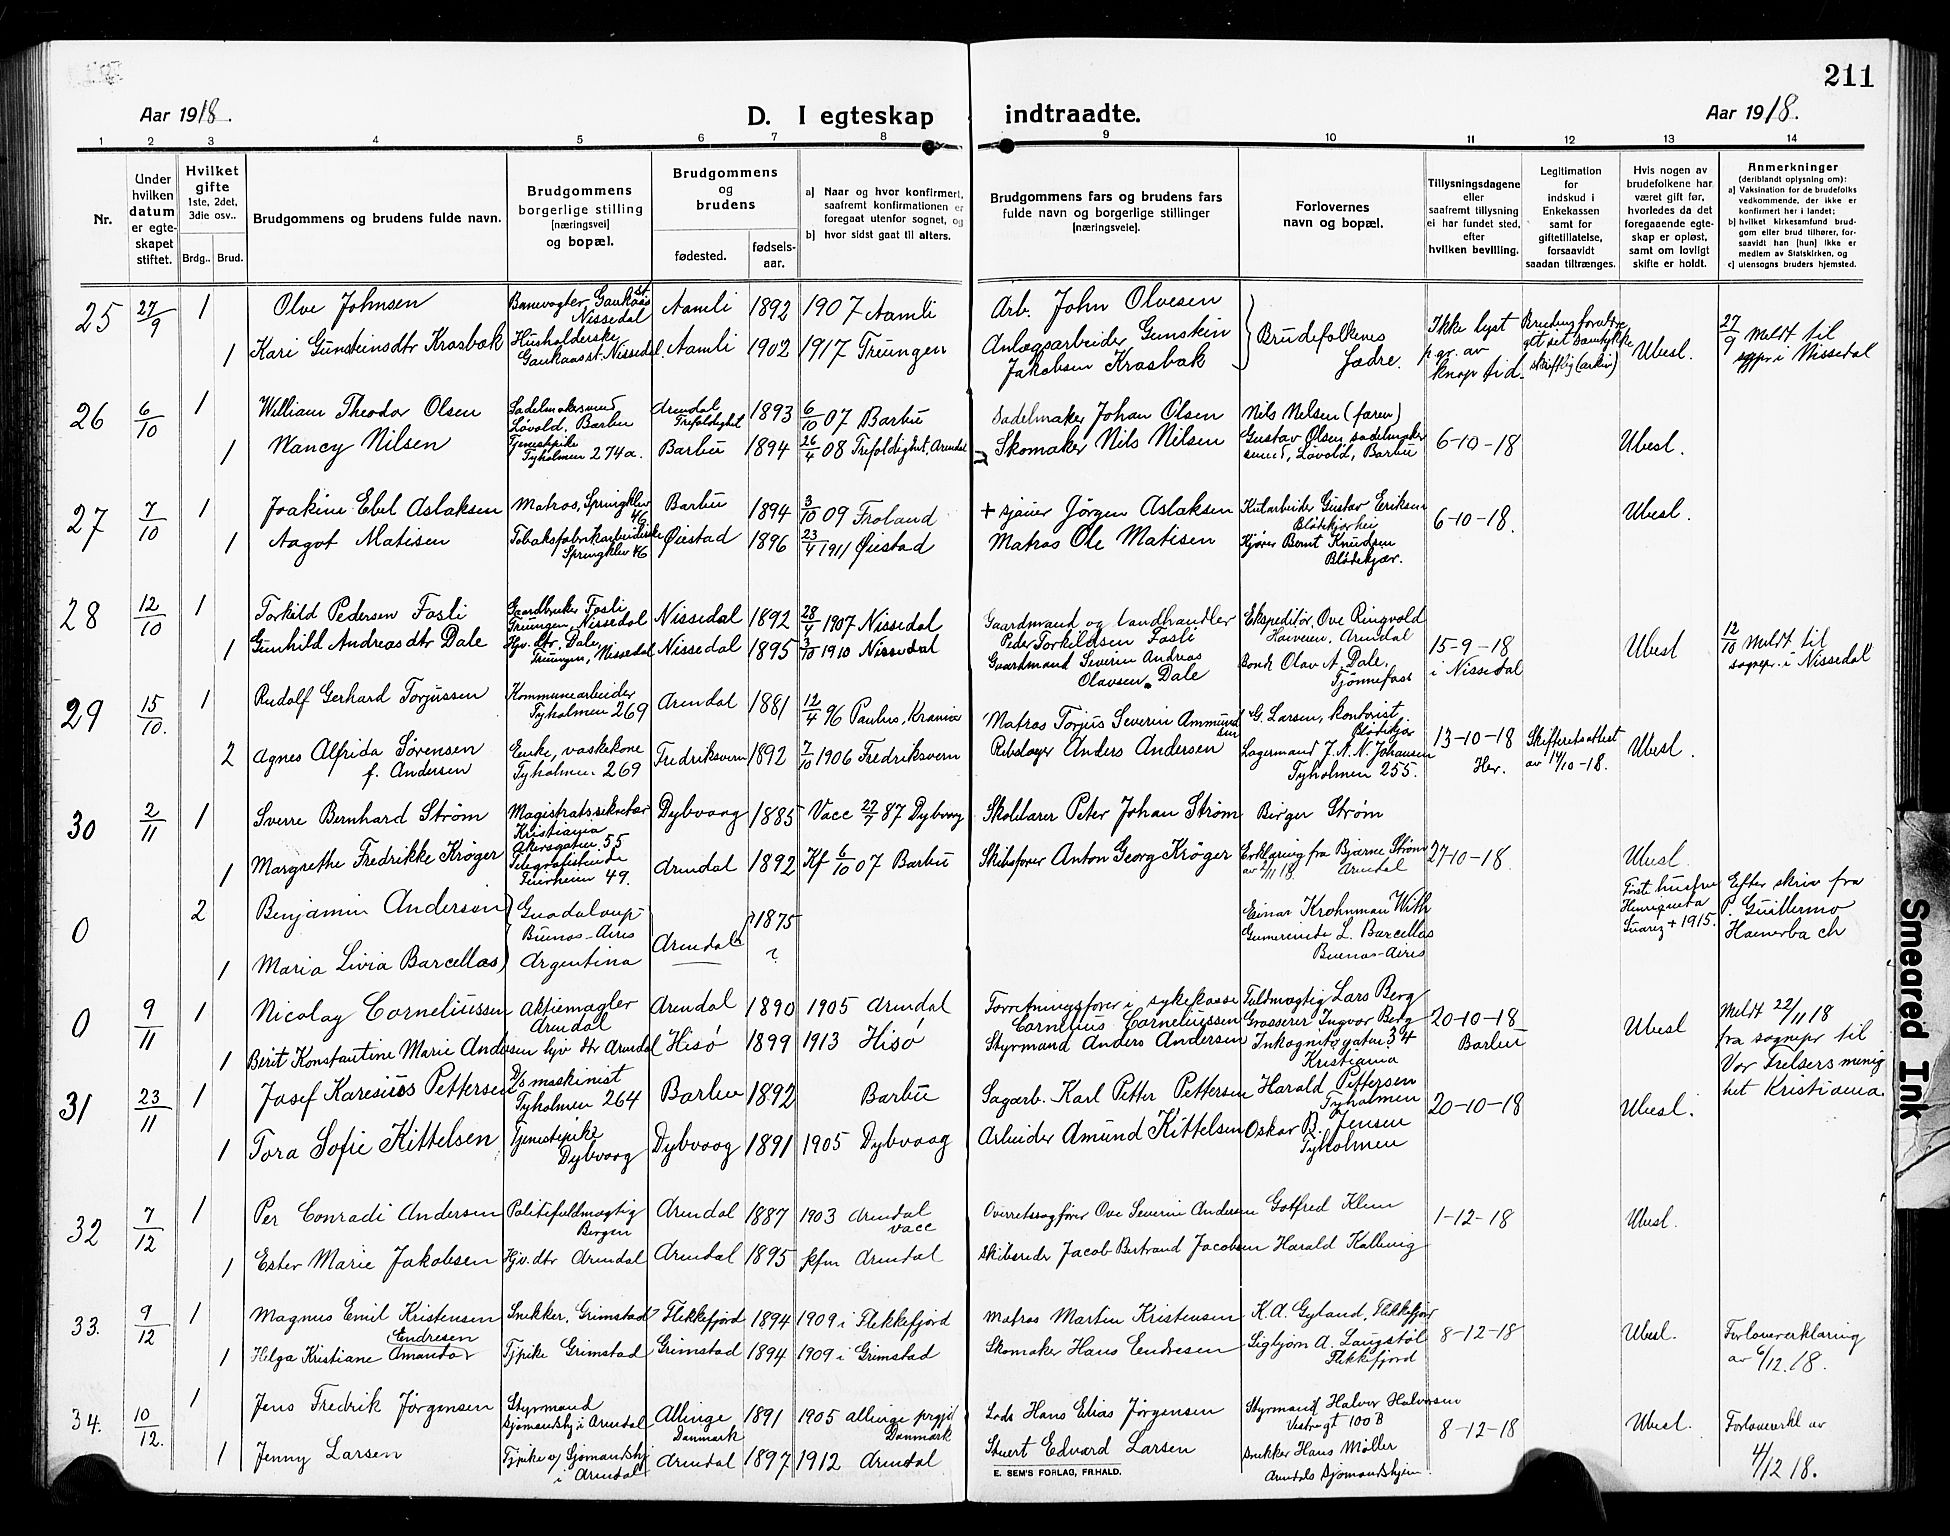 211
Aar 1918.
D. I egteskap indtraadte.
Aar 1918.
1 2 3 4 5 6 7 8 9 10 11 12 13 14
Nr.
Under hvilken datum er egteskapet stiftet.
Hvilket gifte 1ste, 2det, 3die osv..
Brdg.. Brud.
Brudgommens og brudens fulde navn.
Brudgommens borgerlige stilling [næringsvei] og bopæl.
Brudgommens og brudens
fødested. fødselsaar.
a) Naar og hvor konfirmert, saafremt konfirmationen er foregaat utenfor sognet, og
b) hvor sidst gaat til alters.
Brudgommens fars og brudens fars fulde navn og borgerlige stillinger [næringsveie].
Forlovernes navn og bopæl.
Tillysningsdagene eller saafremt tillysning ei har fundet sted, efter hvilken bevilling.
Legitimation for indskud i Enkekassen samt for giftetillatelse, forsaavidt saadan tiltrænges.
Hvis nogen av brudefolkene har været gift før, hvorledes da det foregaaende egteskap er opløst, samt om lovligt skifte er holdt.
Anmerkninger (deriblandt oplysning om):
a) Vaksination for de brudefolks vedkommende, der ikke er konfirmert her i landet;
b) hvilket kirkesamfund brudgom eller brud tilhører, forsaavidt han [hun] ikke er medlem av Statskirken, og
c) utensogns bruders hjemsted.
25 27/9 1 Olve Johnsen Banevogter, Gaukaas st. Nissedal Aamli 1892 1907 Aamli Arb. John Olvesen
1 Kari Gunsteinsdtr Krosbak Husholderske Gaukaas st. Nissedal Aamli 1902 1917 Treungen Anlægsarbeider Gunstein Jakobsen Krosbak
Brudefolkenes fædre. Ikke lyst p. gr. av knap tid. skriftlig (arkiv) Ubesl. 27/9 Meldt til sogepr i Nissedal
26 6/10 1 William Theodor Olsen Sadelmakersvend Løvold, Barbu Arendal Trefoldighet 1893 6/10 07 Barbu Sadelmaker Johan Olsen Nils Nilsen (faren)
1 Nancy Nilsen Tjenestpike Tyholmen 274a. Barbu 1894 26/4 08 Trefoldighet, Arendal Skomaker Nils Nilsen Gustav Olsen sadelmaker svend, Løvold, Barbu 6-10-18 Ubesl.
27 7/10 1 Joakine Ebel Aslaksen Matros, Springklev 46 Barbu 1894 3/10 09 Froland + sjauer Jørgen Aslaksen Kularbeider Gustav Eriksen Blødekjærhei
1 Aagot Matisen Tobaksfabrikarbeiderske Springklev 46 Øiestad 1896 23/4 1911 Øiestad Matros Ole Matisen Kjører Bernt Knudsen Blødekjær. 6-10-18. Ubesl.
28 12/10 1 Torkild Pedersen Fosli Gaardbruker Fosli Treungen, Nissedal Nissedal 1892 28/4 1907 Nissedal Gaardmand og landhandler Peder Torkildsen Fosli Ekspeditør, Ove Ringvold Havnen, Arendal
1 Gunhild Andreasdtr Dale Hjv. dtr. Dale, Treungen, Nissedal Nissedal 1895 3/10 1910 Nissedal Gaardmand Severin Andreas Olavsen Dale Bonde Olav A. Dale, Tjønnefoss 15-9-18 i Nissedal Ubesl 12/10 Meldt til sognepr. i Nissedal
29 15/10. 1 Rudolf Gerhard Torjussen Kommunearbeider Tyholmen 269 Arendal 1881 12/4 96 Paulus, Krania Matros Torjus Severin Ammundsen G. Larsen, kontorist Blødekjær
2 Agnes Alfrida Sørensen f. Andersen Enke, vaskekone Tyholmen 269 Fredriksvern 1892 7/10 1906 Fredriksvern Rebslager Anders Andersen Lagermand J. A. N. Johansen Tyholmen 255. 13-10-18 Her. Skifteretsattest av 14/10-18. Ubesl.
30 2/11 1 Sverre Bernhard Strøm Magistratssekretær Kristiania Akersgaten 55 Dybvaag 1885 Vacc 27/7 87 Dybvaag Skoldærer Peter Johan Strøm Birger Strøm
1 Margrethe Fredrikke Krøger Telegrafistinde 49. Arendal 1892 Kf 6/10 07 Barbu Skibsfører Anton Georg Krøger Erklæring fra Bjarne Strøm av 2/11 18. Arendal 27-10-18. Ubesl.
0 2 Benjamin Andersen Guadaloup- Buenos-Aires Arendal 1875 Einar Krohnman With
1 Maria Livia Barcellas Argentina ? L. Barcellas Buenos-Aires Først hustru Henriqueta Suarez + 1915. Efter skriv fra P. Guillermo
0 9/11 1 Nicolay Corneliussen Aktiemægler Arendal Arendal 1890 1905 Arendal Forretningsfører i sykekasse Cornelius Corneliussen Fuldmægtig Lars Berg
1 Birit Konstantine Marie Andersen hjv dtr Arendal Hisø 1899 1913 Hisø Styrmand Anders Andersen Grosserer Ingvar Berg Inkognitogaten 34 Kristiania 20-10-18 Barbu Ubesl Meldt 22/11 18 fra sognepr til Vor Frelsers menighet Kristiania.
31 23/11 1 Josef Karesius Pettersen D/s maskinist Tyholmen 264 Barbu 1892 Barbu Sagarb. Karl Petter Pettersen Harald Pettersen Tyholmen
1 Tora Sofie Kittelsen Tjenestepike Dybvaag Dybvaag 1891 1905 Dybvaag Arbeider Amund Kittelsen Oskar B. Jensen Tyholmen 20-10-18 Ubesl.
32 7/12 1 Per Conradi Andersen Politifuldmægtig Bergen Arendal 1887 1903 Arendal vacc Overretssagfører Ove Severin Andersen Gotfred Klem
1 Ester Marie Jakobsen Hjv. dtr Arendal Arendal 1895 kfm Arendal Skibsreder Jacob Bertrand Jacobsen Harald Kallevig 1-12-18 Ubesl.
33. 9/12 1 Magnus Emil Kristensen Snekker, Grimstad Flekkefjord 1894 1909 i Flekkefjord Matros Martin Kristensen K. A. Gyland, Flekkefjor
1 Helga Kristiane Amanda Endresen Tjpike Grimstad Grimstad 1894 1909 i Grimstad Skomaker Hans Endresen Sigbjørn A. Laugstøl Flekkefjord 8-12-18 Ubesl. Forlovererklæring av 6/12 18.
34. 10/12. 1 Jens Fredrik Jørgensen Styrmand Sjømandshj i Arendal Allinge Danmark 1891 1905 Allinge prgjld Danmark Lods Hans Elias Jørgensen Styrmand Halvor Halvorsen Vestregt 100 B
1 Jenny Larsen Tjpike v/ Sjømandshj i Arendal Arendal 1897 1912 Arendal Stuert Edvard Larsen Snekker Hans Møller Arendals Sjømandshjem. 8-12-18 Ubesl. Forlovererkl av 4/12 18.
E. SEM'S FORLAG, FR.HALD.
Smeared Ink